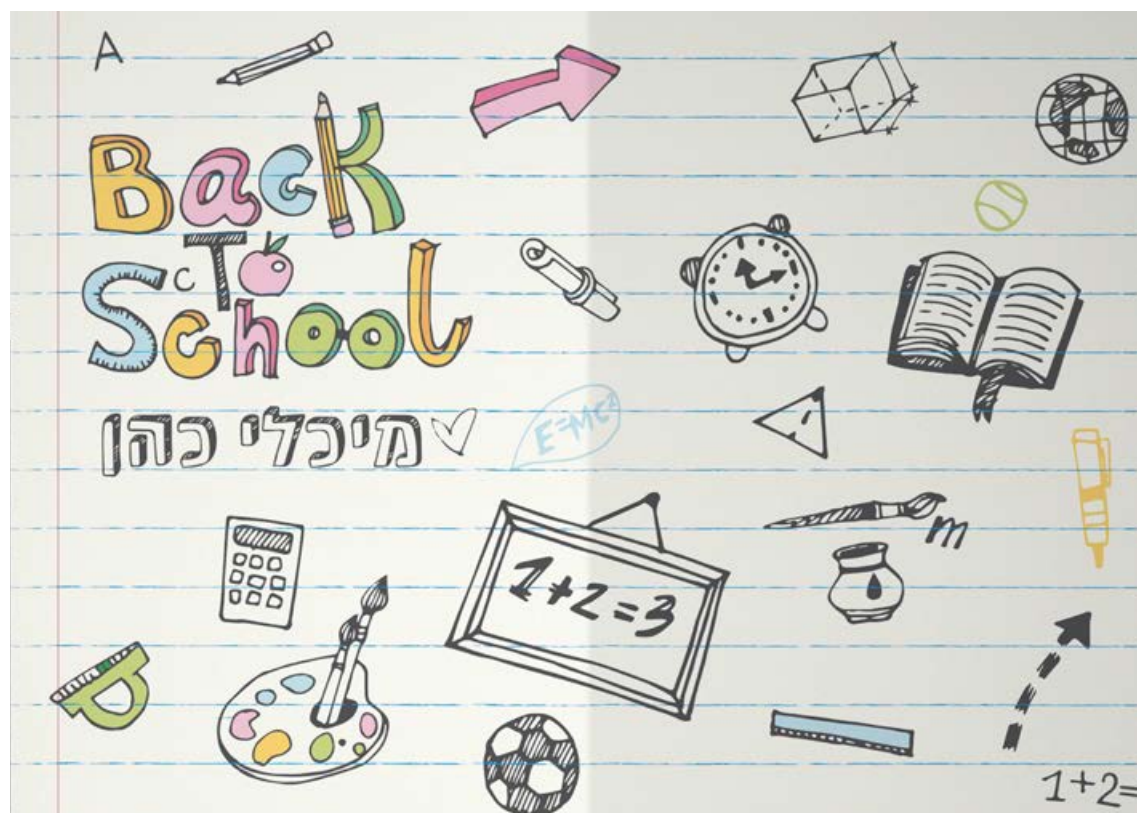 A
Back
To
c
School
מיכלי כהן
E=MC²
m
1+2=3
1+2=